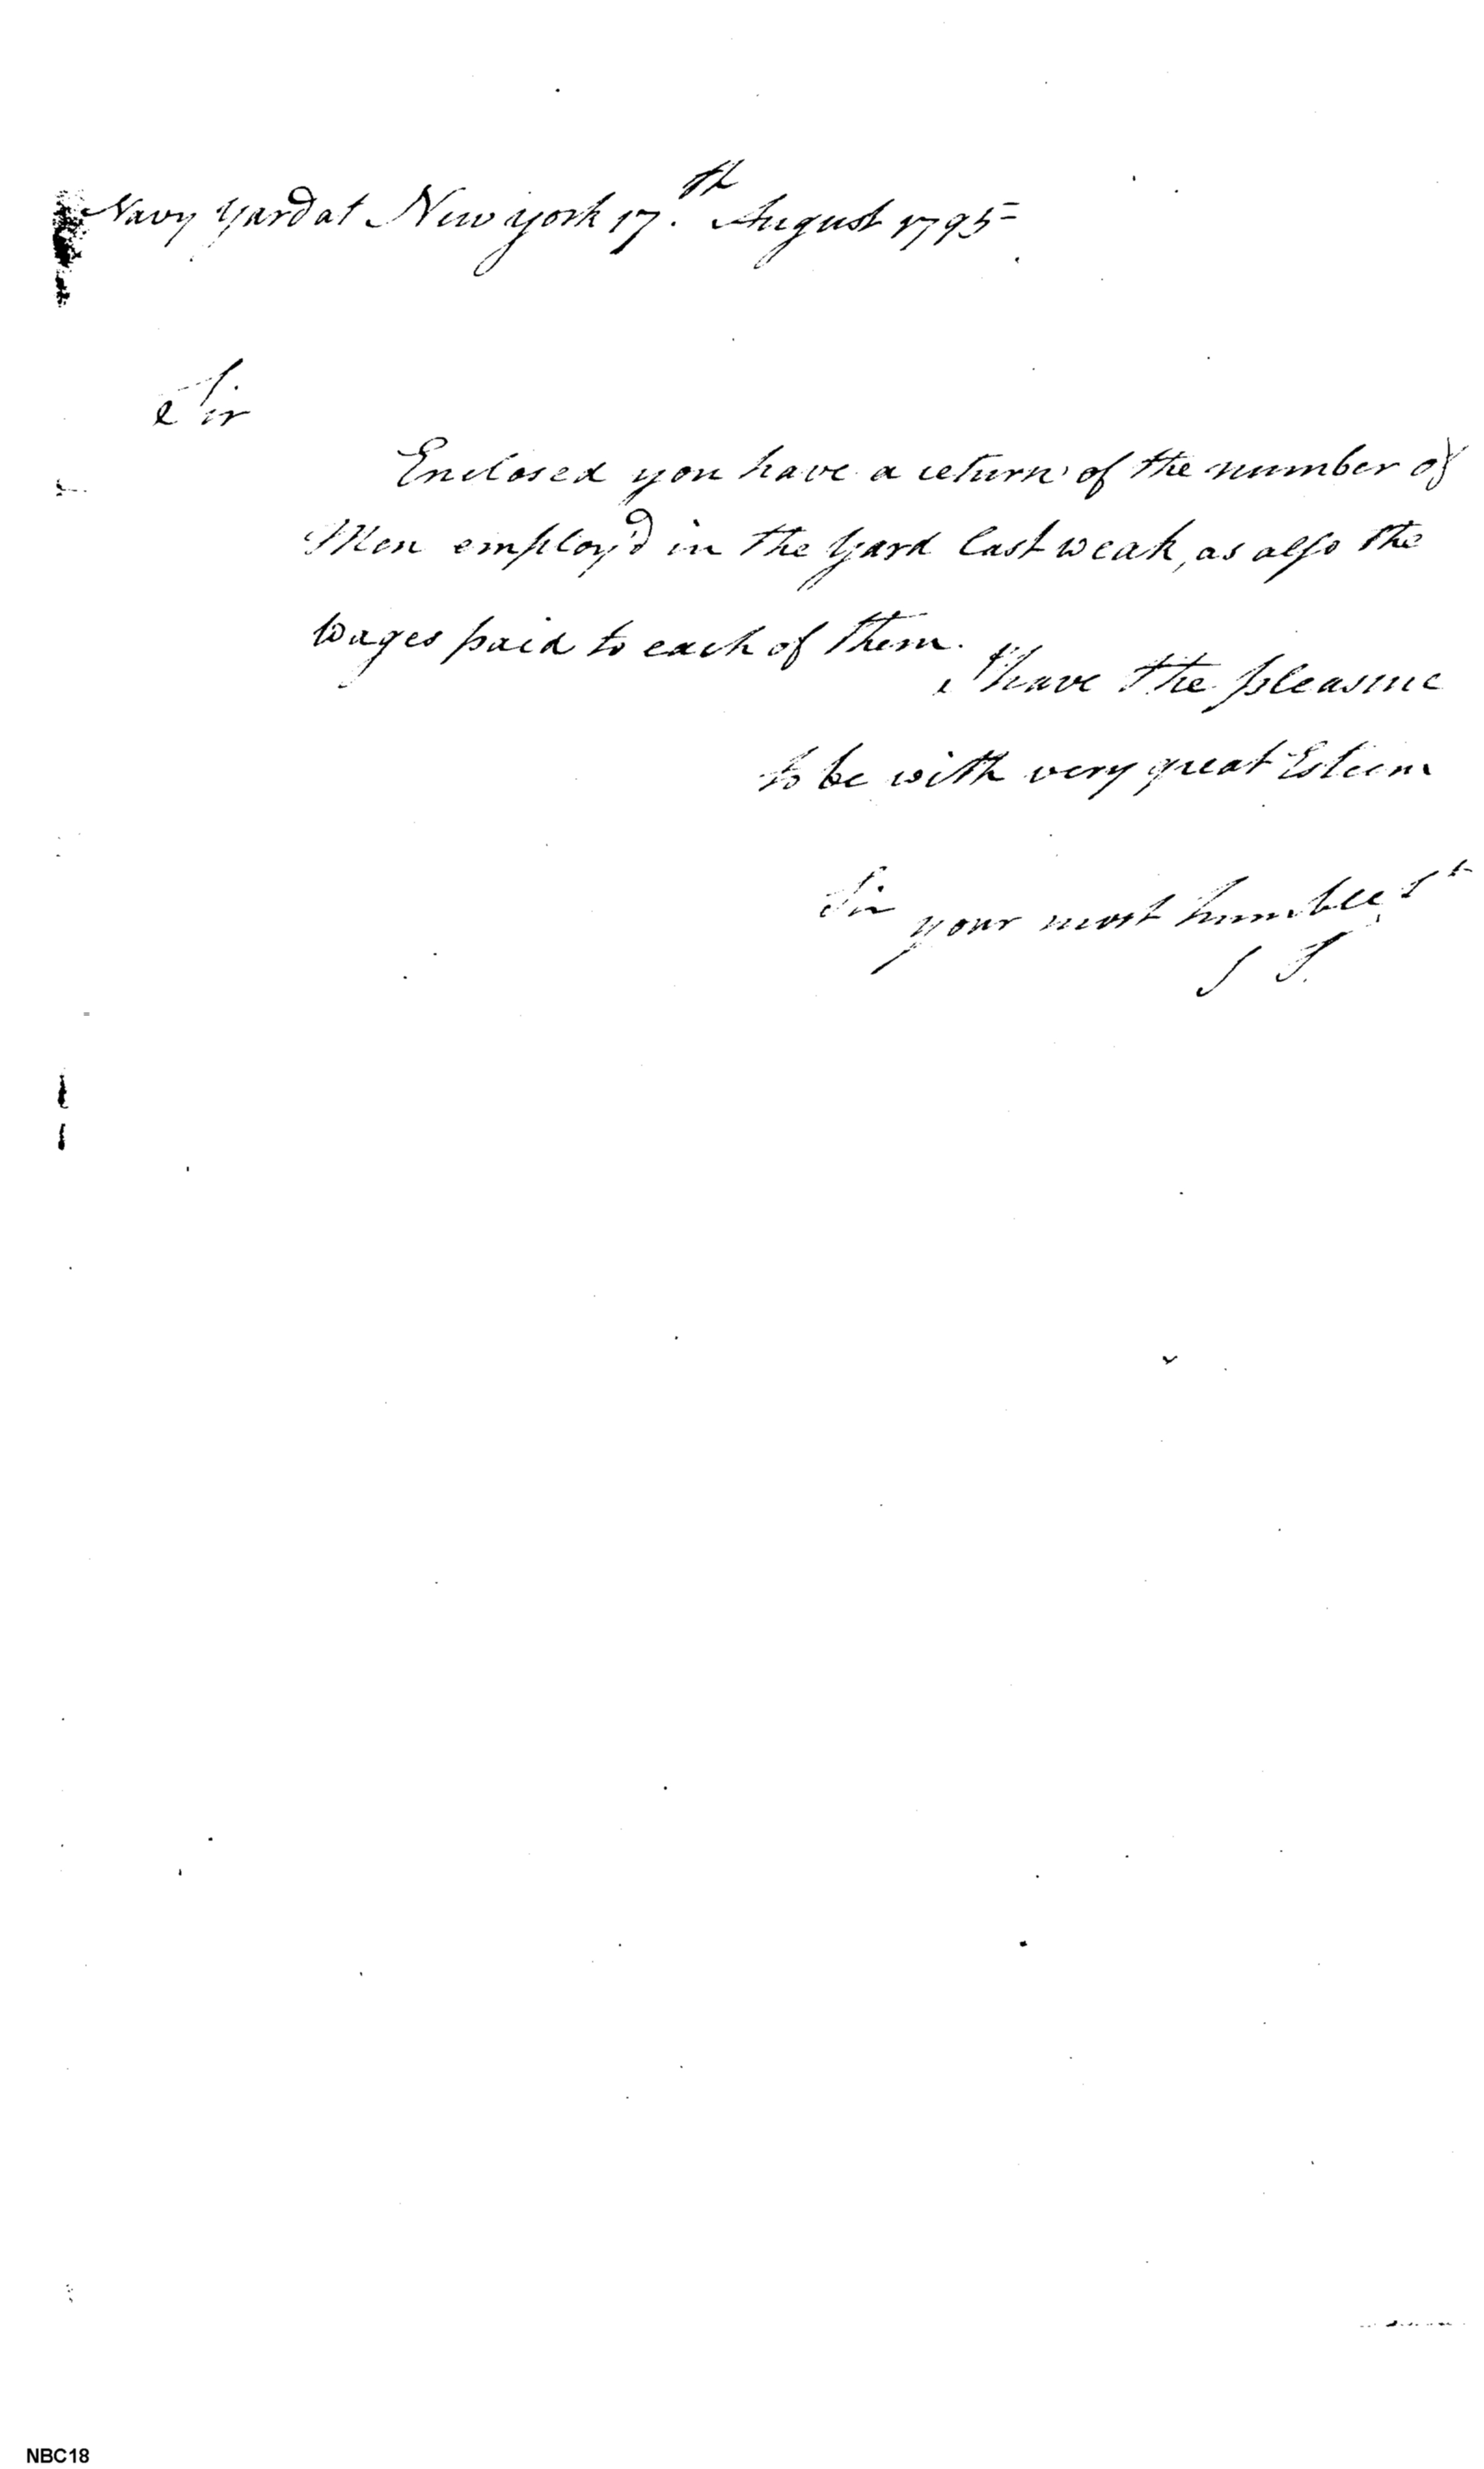 Navy Yard at New york 17.th August 1795
Sir
Enclosed you have a return of the number of
Men employ'd in the Yard last weak, as also the
Wages paid to each of them.
I have the pleasure
to be with very great Esteem
Sir your most humble St
J S.
NBC18